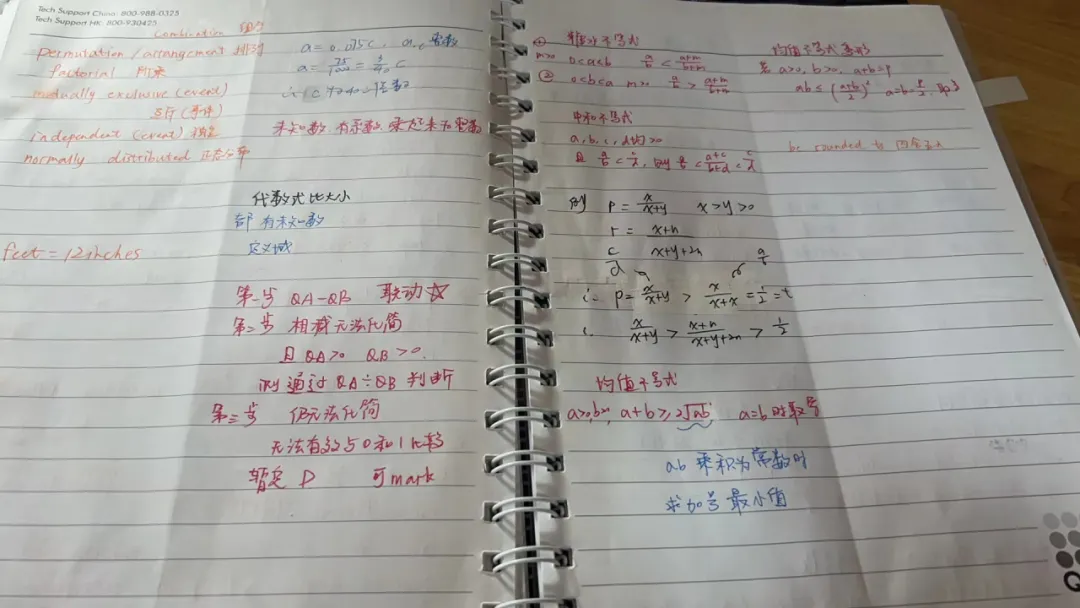 Tech Support China: 800-988-0325
Tech Support HK: 800-930423
Combination 组合
permutation / arrangement 排列
factorial 阶乘
mutually exclusive (event)
互斥 (事件)
independent (event) 独立
normally distributed 正态分布
feet = 12 inches
a = 0.075c, a,c 整数
a = 75/1000 = 3/40 c
∴ c 为40的倍数
未知数 有系数
代数式比大小
都有未知数
定义域
第一步 QA-QB 联动☆
第二步 相减无法化简
且QA>0 QB>0.
则通过QA÷QB 判断
第三步 仍无法化简
无法有效与0和1比较
暂定 D 可mark
① 糖水不等式
m>0 0<a<b a/b < a+m/b+m
② 0<b<a m>0 a/b > a+m/b+m
中和不等式
a,b,c,d均>0
且 a/b < c/d, 则 a/b < a+c/b+d < c/d
例 P = x/x+y x>y>0
r = x+n/x+y+2n
c/d a/b
∴ P = x/x+y > x/x+x = 1/2 = t
∴ x/x+y > x+n/x+y+2n > 1/2
均值不等式
a>0,b>0, a+b ≥ 2√ab a=b时取等
ab 乘积为常数时
求加号最小值
均值不等式变形
若 a>0, b>0, a+b=P
ab ≤ (a+b/2)² a=b=P/2,
be rounded to 四舍五入
Q